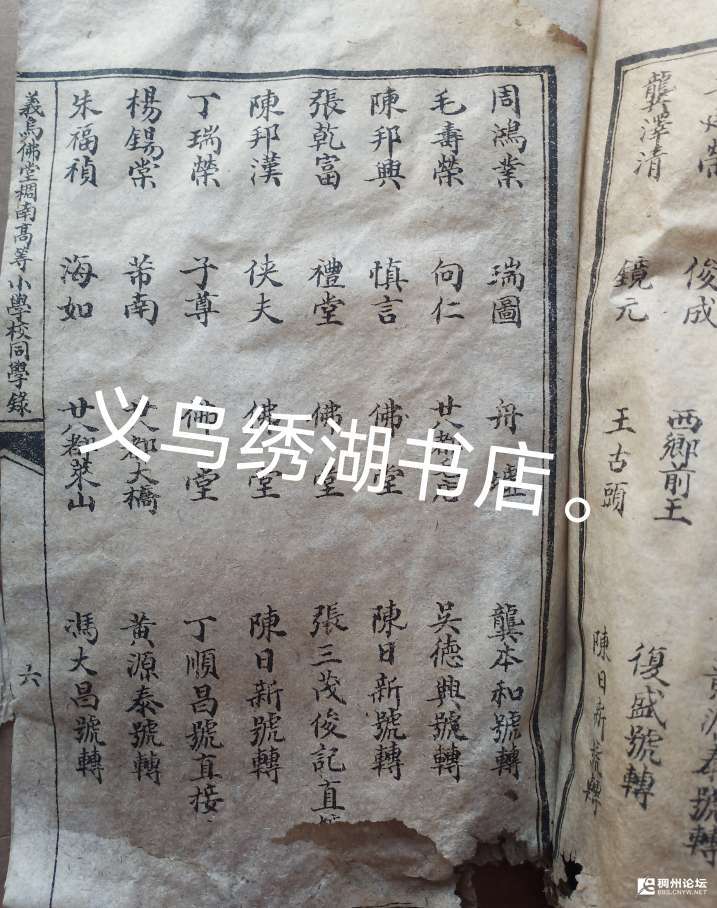 榮
俊成
西鄉前王
黃源泰號轉
龔澤清
鏡元
王古頭
復盛號轉
陳日新號轉
周鴻業
瑞圖
舟墟
龔本和號轉
毛壽榮
向仁
廿八都
吳德興號轉
陳邦興
慎言
佛堂
陳日新號轉
張乾富
禮堂
佛堂
張三茂俊記直
陳邦漢
俠夫
佛堂
陳日新號轉
丁瑞榮
子尊
佛堂
丁順昌號直接
楊錫棠
芾南
廿八都大橋
黃源泰號轉
朱福禎
海如
廿八都萊山
馮大昌號轉
義烏佛堂稠南高等小學校同學錄
六
义乌绣湖书店。
稠州论坛
BBS.CNYW.NET